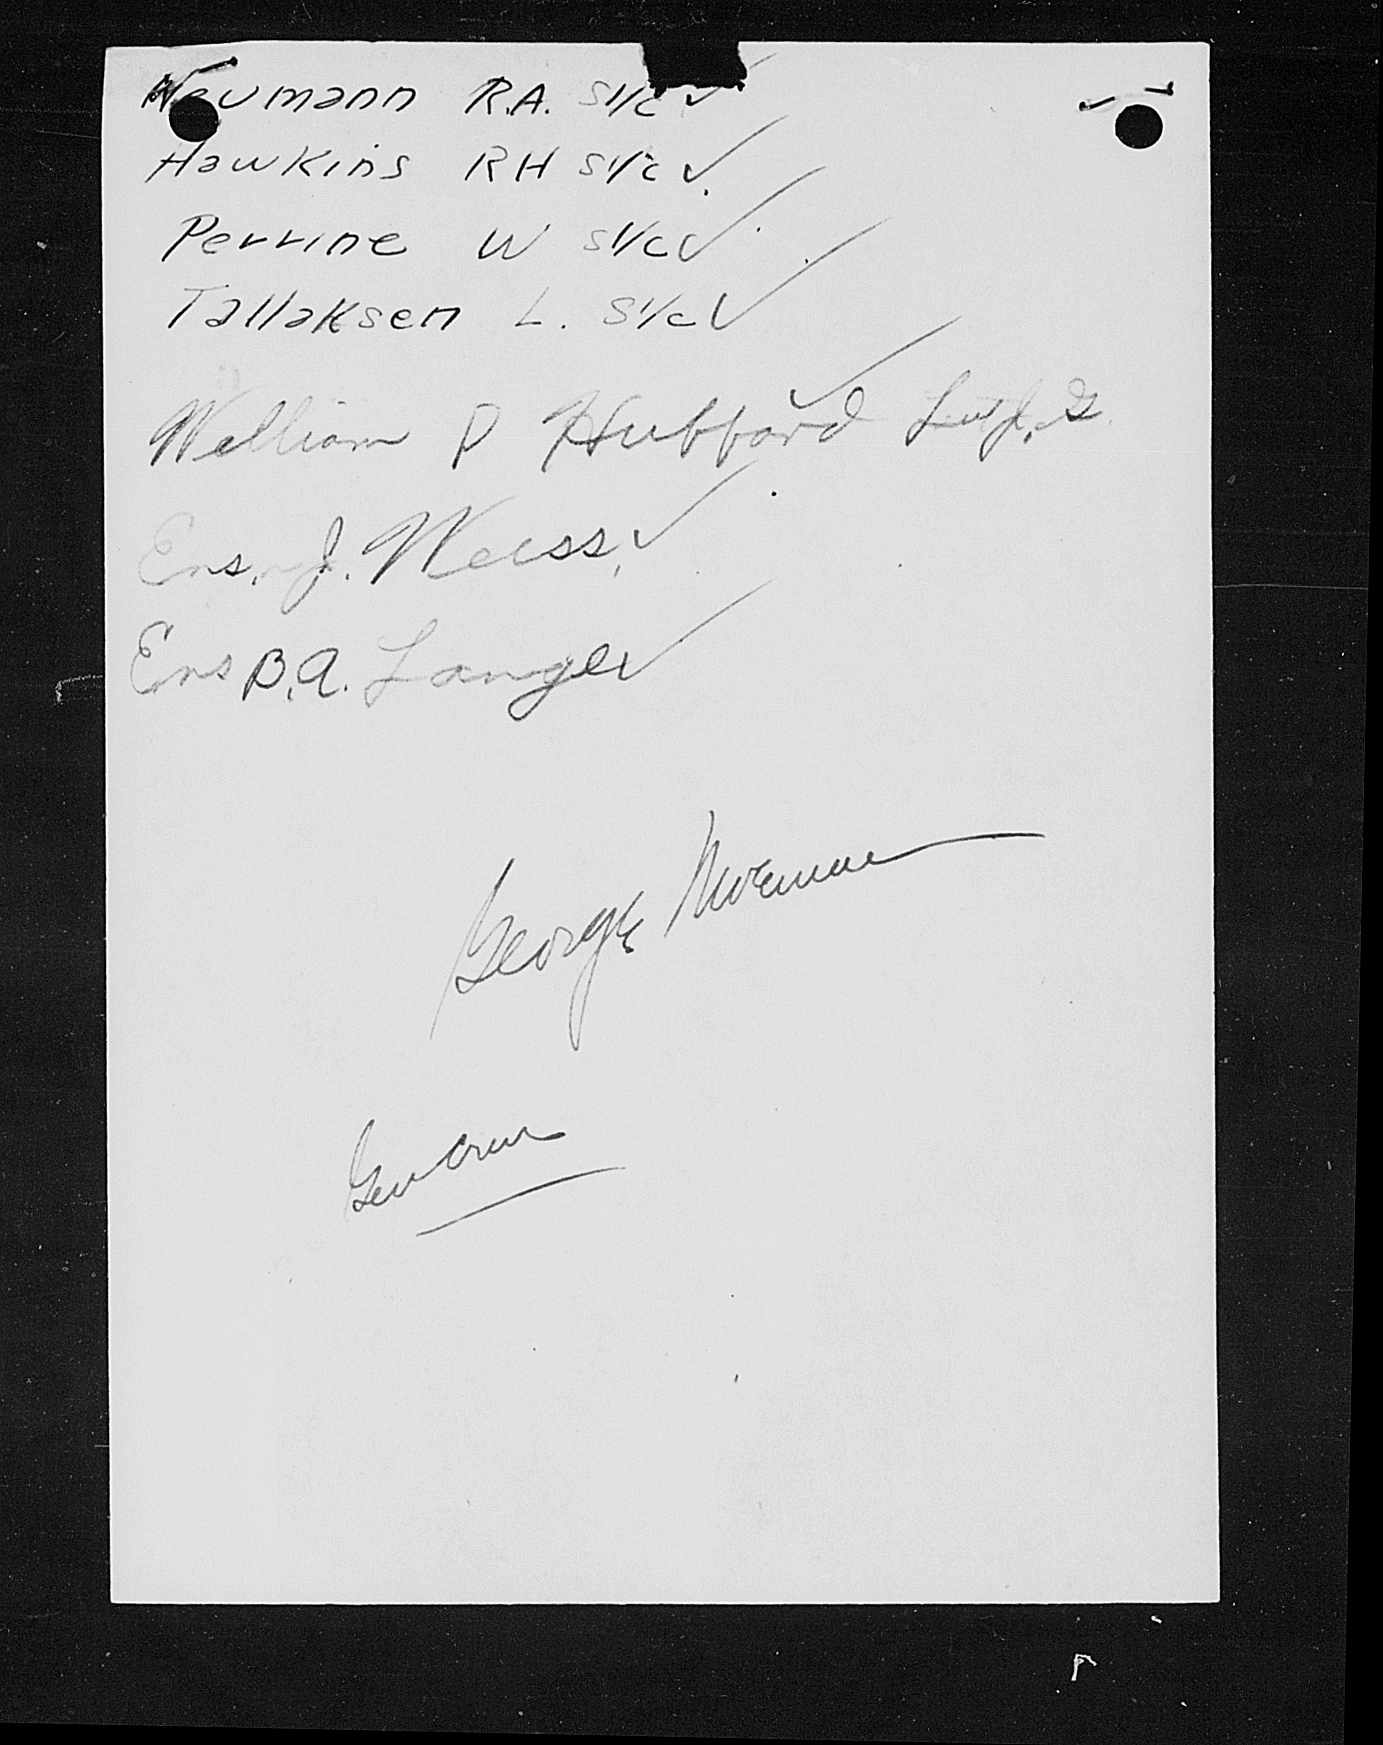 Neumann R.A. S1/c ✓
Hawkins RH S1/c ✓
Perrine W S1/c ✓
Tallaksen L. S1/c ✓
William P Hubbard Lieut j.g.
Ens. J. Weiss ✓
Ens B.A. Langel ✓
George